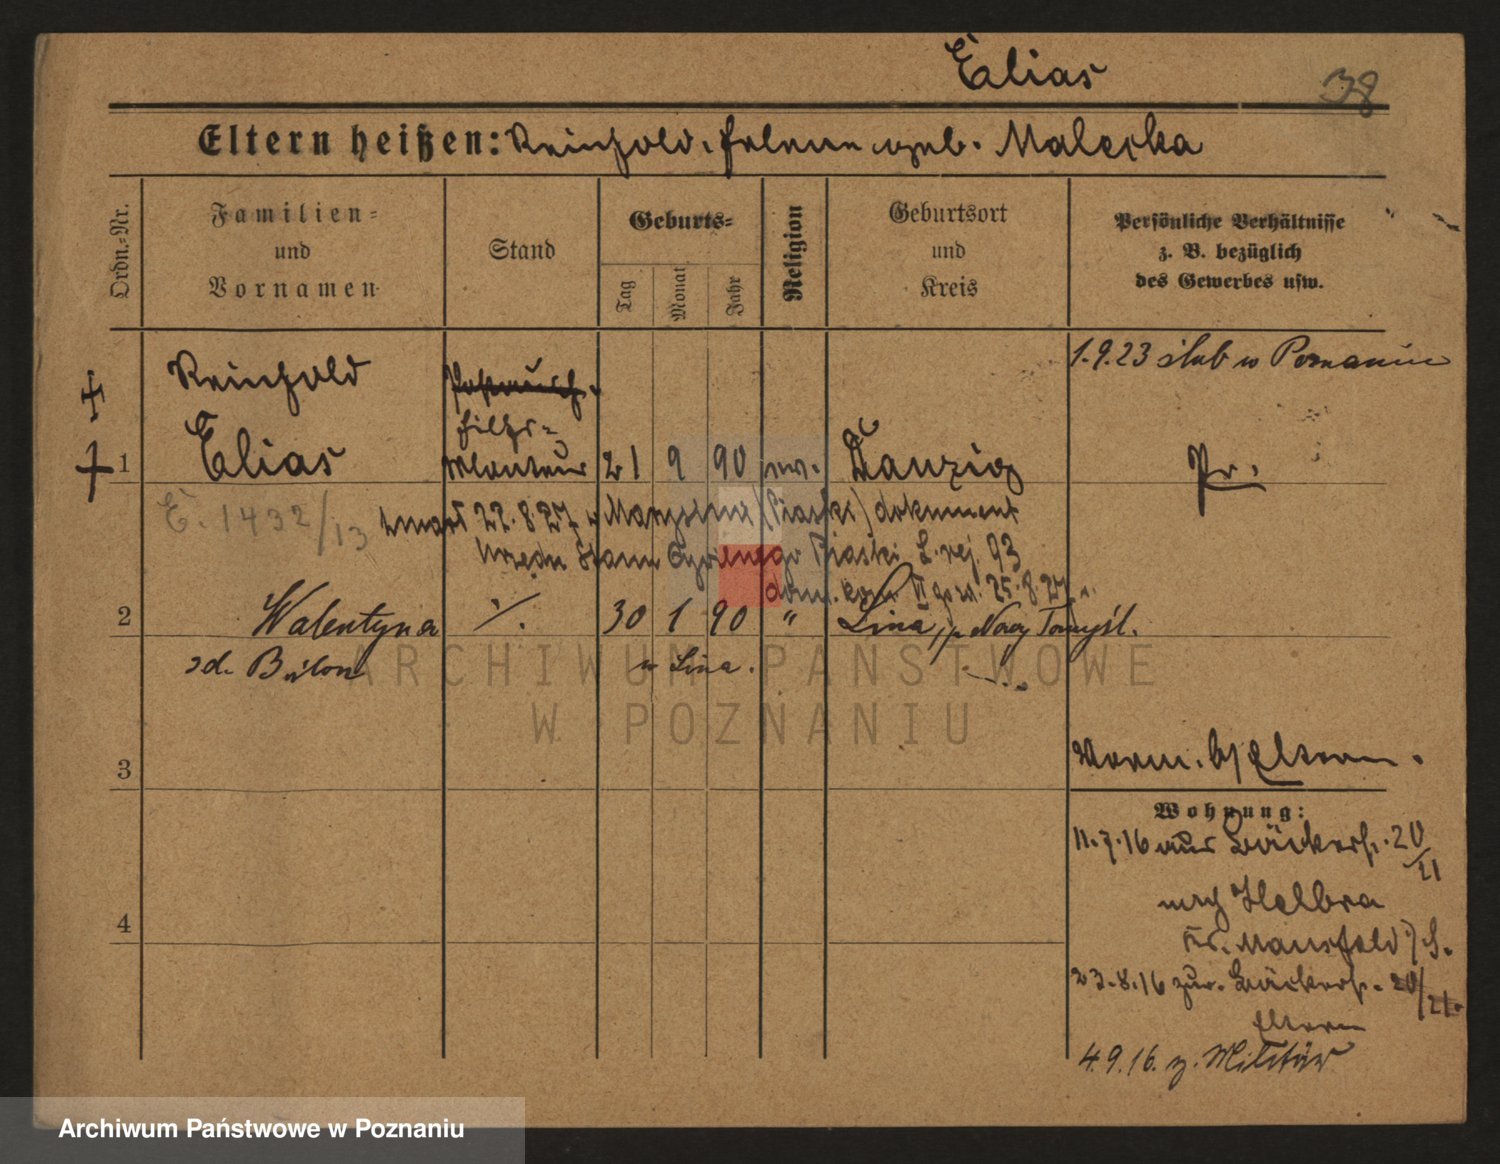 Elias
38
Eltern heißen: Reinhold. Helene geb. Malecka
Ordn.-Nr.
Familien-
und
Vornamen
Stand
Geburts-
Tag
Monat
Jahr
Religion
Geburtsort
und
Kreis
Persönliche Verhältnisse
z. B. bezüglich
des Gewerbes usw.
1.9.23 ślub w Poznaniu
Reinhold
Hilfs-
1 Elias Monteur 21 9 90 ev. Danzig
Pr.
E. 1432/13
zmarł 22.8.27 w (Piaski) dokument
Urzędu Stanu Cywilnego Piaski L. rej. 93
dom. kom. VI 25.8.27
2 Walentyna ./. 30 1 90 " Lina, p. Nowy Tomyśl.
zd. Bülow w Lina.
ARCHIWUM PAŃSTWOWE
W POZNANIU
3
Vorm. b/Eltern.
Wohnung:
11.7.16 aus Bäckerst. 20/21
nach Helbra
Kr. Mansfeld
4
23.8.16 zur. Bäckerst. 20/21.
Eltern
4.9.16. z. Militär
Archiwum Państwowe w Poznaniu